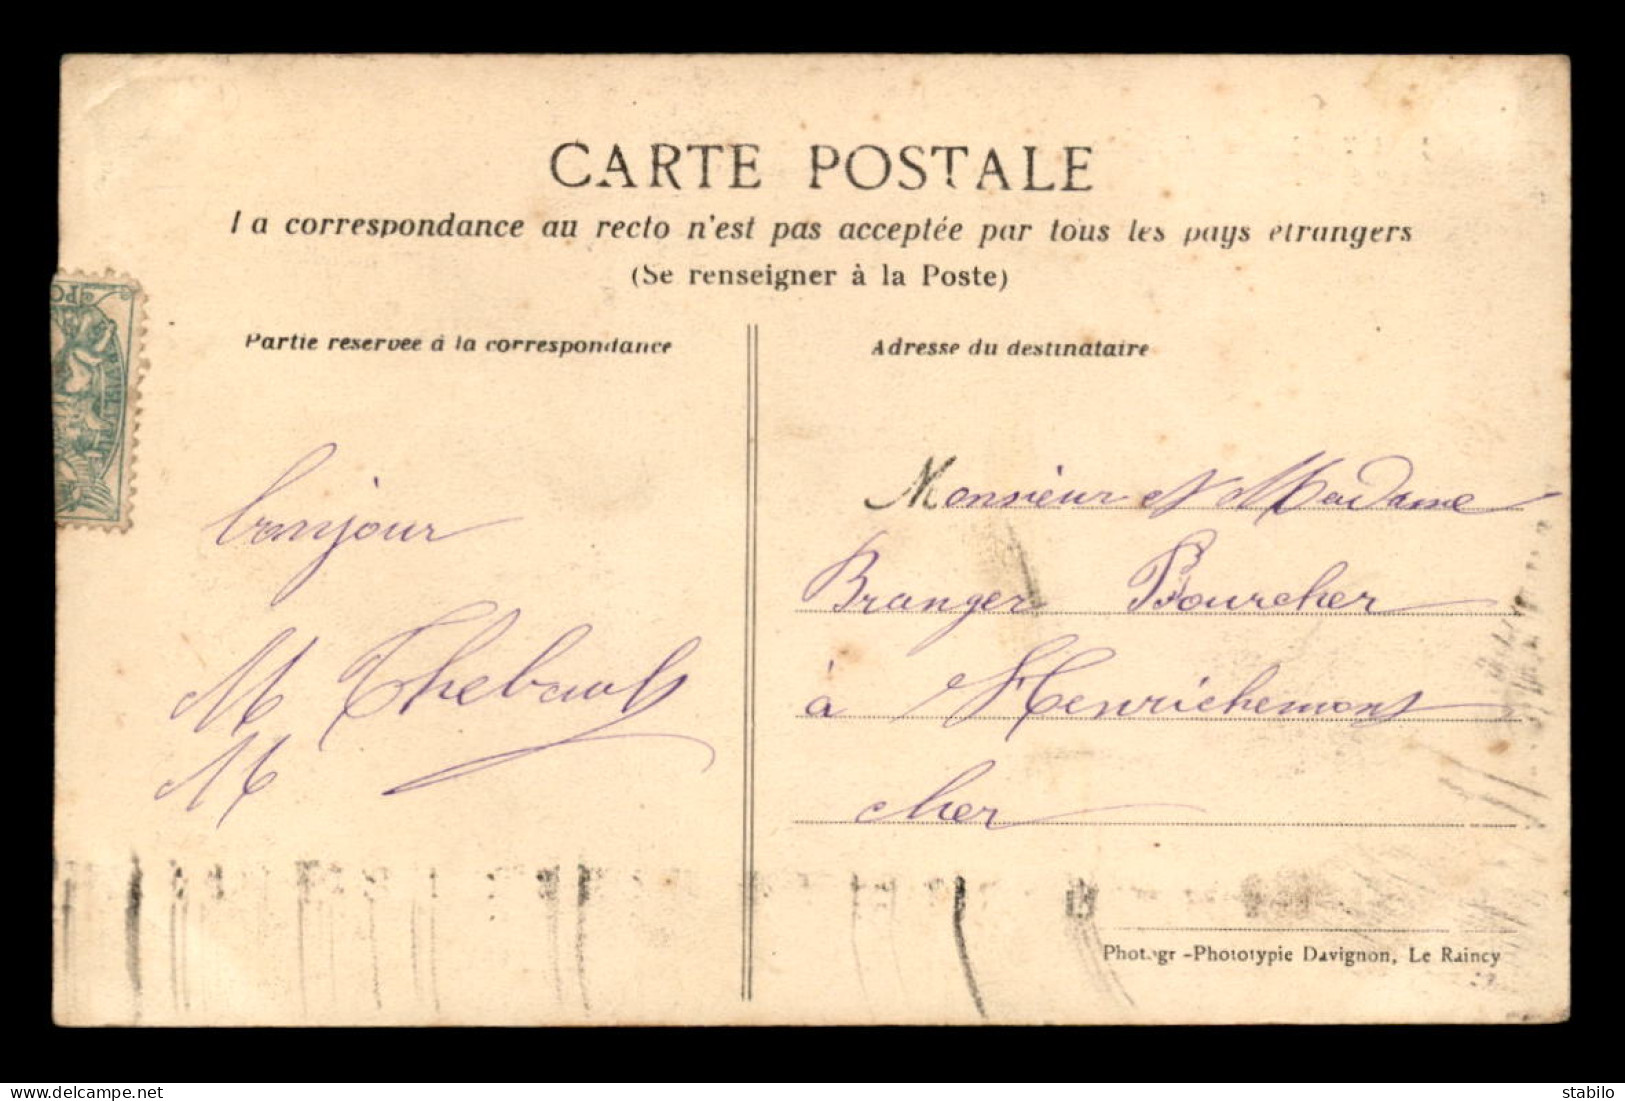 CARTE POSTALE
La correspondance au recto n'est pas acceptée par tous les pays etrangers
(Se renseigner à la Poste)
Partie reservee à la correspondance
bonjour
M Thebault
M
Adresse du destinataire
Monsieur et Madame
Branger Bourcher
à Henrichemont
cher
Photogr -Phototypie Davignon, Le Raincy
delcampe.net
stabilo